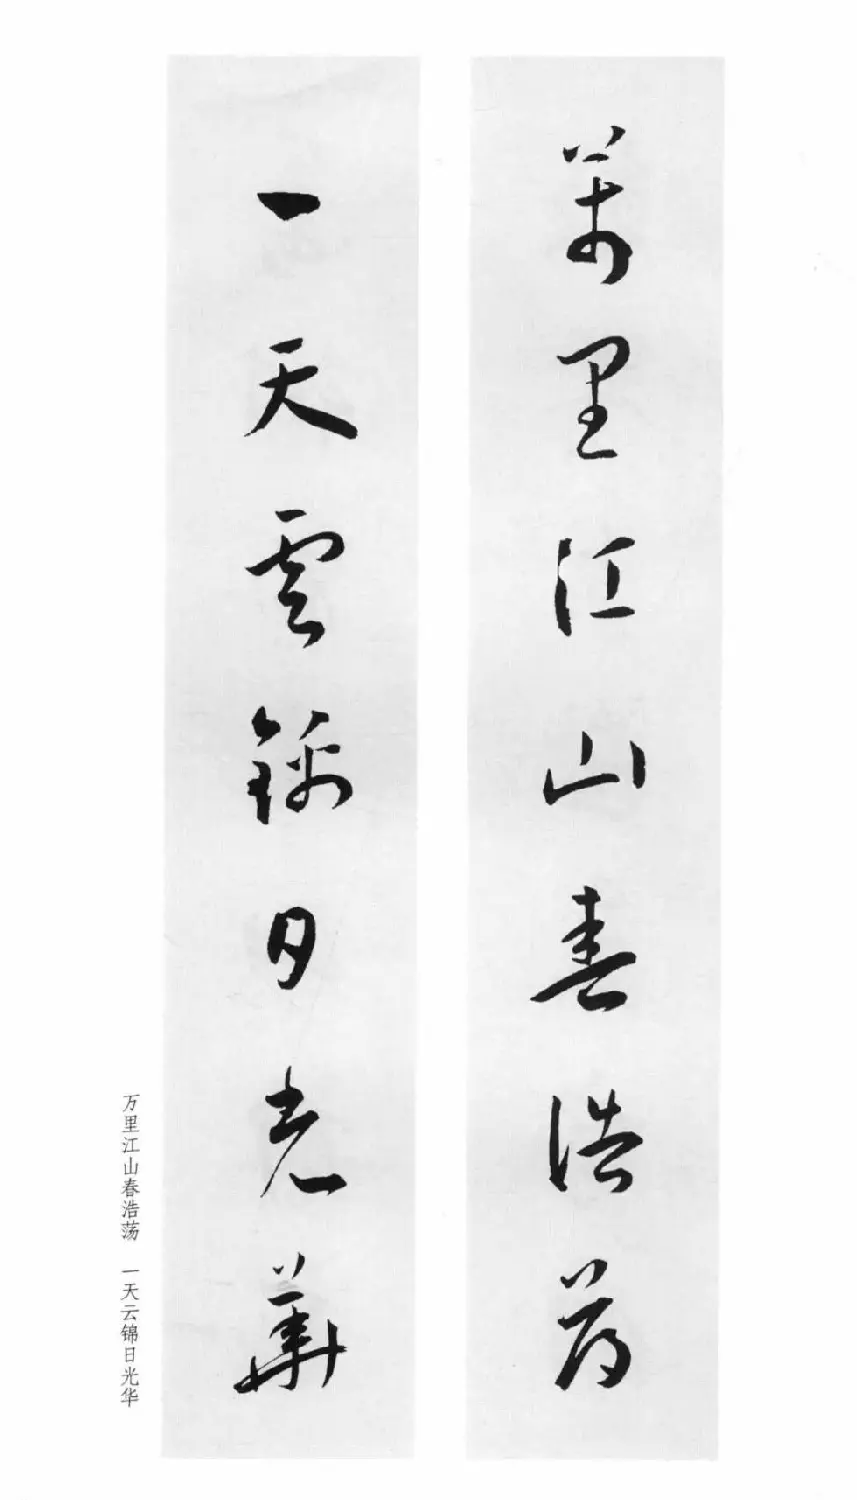 萬里江山春浩蕩
一天雲錦日光華
万里江山春浩荡 一天云锦日光华